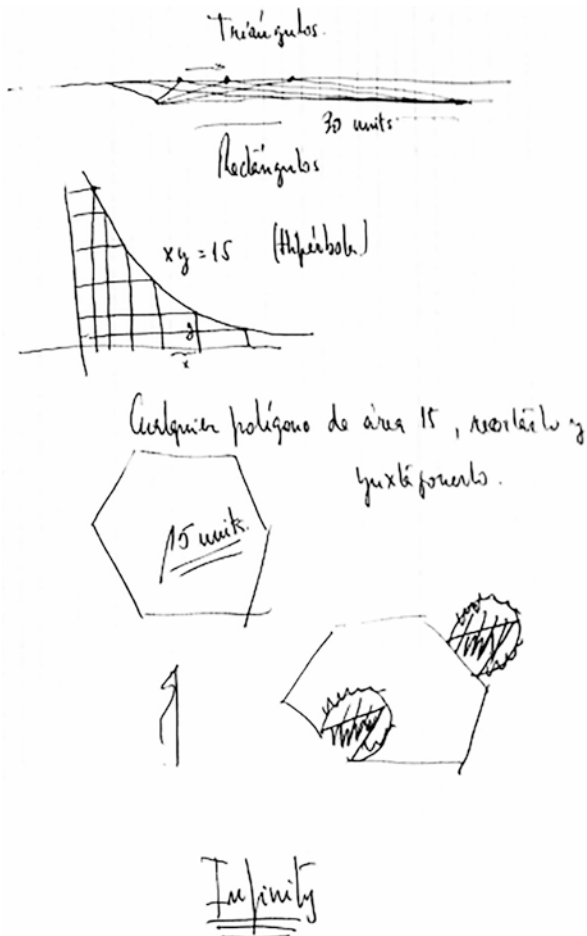 Triángulos.
x
30 units
Rectángulos
xy = 15 (Hipérbola)
y
x
Cualquier polígono de área 15, recortarlo y
yuxtaponerlo.
15 units.
Infinity